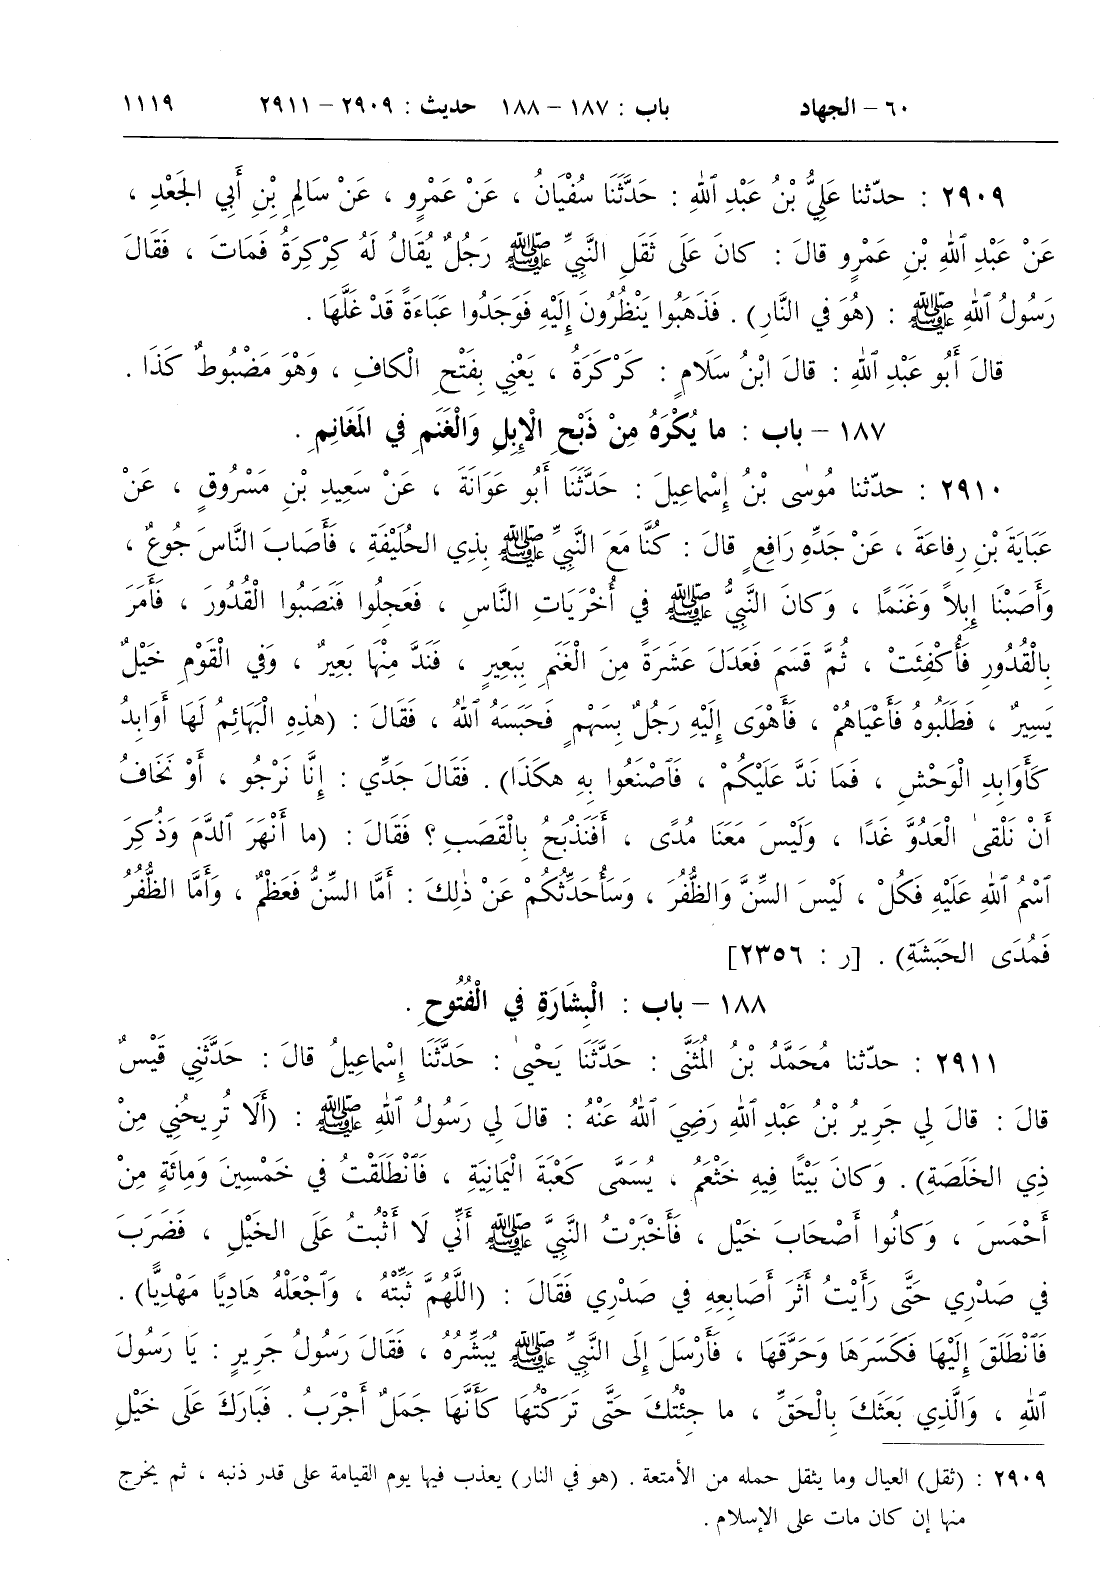 ٦٠ – الجهاد باب : ١٨٧ – ١٨٨ حديث : ٢٩٠٩ – ٢٩١١ ١١١٩
٢٩٠٩ : حدّثنا عَلِيُّ بْنُ عَبْدِ ٱللهِ : حَدَّثَنَا سُفْيَانُ ، عَنْ عَمْرٍو ، عَنْ سَالِمِ بْنِ أَبِي الجَعْدِ ،
عَنْ عَبْدِ ٱللهِ بْنِ عَمْرٍو قالَ : كانَ عَلَى ثَقَلِ النَّبِيِّ ﷺ رَجُلٌ يُقَالُ لَهُ كِرْكِرَةُ فَمَاتَ ، فَقَالَ
رَسُولُ ٱللهِ ﷺ : (هُوَ في النَّارِ) . فَذَهَبُوا يَنْظُرُونَ إِلَيْهِ فَوَجَدُوا عَبَاءَةً قَدْ غَلَّهَا .
قالَ أَبُو عَبْدِ ٱللهِ : قالَ ابْنُ سَلَامٍ : كَرْكَرَةُ ، يَعْنِي بِفَتْحِ الْكافِ ، وَهْوَ مَضْبُوطٌ كَذَا .
١٨٧ – باب : ما يُكْرَهُ مِنْ ذَبْحِ الْإِبِلِ وَالْغَنَمِ في المَغَانِمِ .
٢٩١٠ : حدّثنا مُوسٰى بْنُ إِسْماعِيلَ : حَدَّثَنَا أَبُو عَوَانَةَ ، عَنْ سَعِيدِ بْنِ مَسْرُوقٍ ، عَنْ
عَبَايَةَ بْنِ رِفاعَةَ ، عَنْ جَدِّهِ رَافِعٍ قالَ : كُنَّا مَعَ النَّبِيِّ ﷺ بِذِي الحُلَيْفَةِ ، فَأَصَابَ النَّاسَ جُوعٌ ،
وَأَصَبْنَا إِبِلاً وَغَنَمًا ، وَكانَ النَّبِيُّ ﷺ في أُخْرَيَاتِ النَّاسِ ، فَعَجِلُوا فَنَصَبُوا الْقُدُورَ ، فَأَمَرَ
بِالْقُدُورِ فَأُكْفِئَتْ ، ثُمَّ قَسَمَ فَعَدَلَ عَشَرَةً مِنَ الْغَنَمِ بِبَعِيرٍ ، فَنَدَّ مِنْهَا بَعِيرٌ ، وَفي الْقَوْمِ خَيْلٌ
يَسِيرٌ ، فَطَلَبُوهُ فَأَعْيَاهُمْ ، فَأَهْوَى إِلَيْهِ رَجُلٌ بِسَهْمٍ فَحَبَسَهُ ٱللهُ ، فَقَالَ : (هٰذِهِ الْبَهَائِمُ لَهَا أَوَابِدُ
كَأَوَابِدِ الْوَحْشِ ، فَمَا نَدَّ عَلَيْكُمْ ، فَٱصْنَعُوا بِهِ هكَذَا) . فَقَالَ جَدِّي : إِنَّا نَرْجُو ، أَوْ نَخَافُ
أَنْ نَلْقىٰ الْعَدُوَّ غَدًا ، وَلَيْسَ مَعَنَا مُدًى ، أَفَنَذْبَحُ بِالْقَصَبِ ؟ فَقَالَ : (ما أَنْهَرَ ٱلدَّمَ وَذُكِرَ
ٱسْمُ ٱللهِ عَلَيْهِ فَكُلْ ، لَيْسَ السِّنَّ وَالظُّفُرَ ، وَسَأُحَدِّثُكُمْ عَنْ ذٰلِكَ : أَمَّا السِّنُّ فَعَظْمٌ ، وَأَمَّا الظُّفُرُ
فَمُدَى الحَبَشَةِ) . [ر : ٢٣٥٦]
١٨٨ – باب : الْبِشَارَةِ في الْفُتُوحِ .
٢٩١١ : حدّثنا مُحَمَّدُ بْنُ المُثَنَّى : حَدَّثَنَا يَحْيىٰ : حَدَّثَنَا إِسْماعِيلُ قالَ : حَدَّثَنِي قَيْسٌ
قالَ : قالَ لِي جَرِيرُ بْنُ عَبْدِ ٱللهِ رَضِيَ ٱللهُ عَنْهُ : قالَ لِي رَسُولُ ٱللهِ ﷺ : (أَلَا تُرِيحُنِي مِنْ
ذِي الخَلَصَةِ) . وَكانَ بَيْتًا فِيهِ خَثْعَمُ ، يُسَمَّى كَعْبَةَ الْيَمَانِيَةِ ، فَٱنْطَلَقْتُ في خَمْسِينَ وَمِائَةٍ مِنْ
أَحْمَسَ ، وَكانُوا أَصْحَابَ خَيْلٍ ، فَأَخْبَرْتُ النَّبِيَّ ﷺ أَنِّي لَا أَثْبُتُ عَلَى الخَيْلِ ، فَضَرَبَ
في صَدْرِي حَتَّى رَأَيْتُ أَثَرَ أَصَابِعِهِ في صَدْرِي فَقَالَ : (اللَّهُمَّ ثَبِّتْهُ ، وَٱجْعَلْهُ هَادِيًا مَهْدِيًّا) .
فَٱنْطَلَقَ إِلَيْهَا فَكَسَرَهَا وَحَرَّقَهَا ، فَأَرْسَلَ إِلَى النَّبِيِّ ﷺ يُبَشِّرُهُ ، فَقَالَ رَسُولُ جَرِيرٍ : يَا رَسُولَ
ٱللهِ ، وَالَّذِي بَعَثَكَ بِالْحَقِّ ، ما جِئْتُكَ حَتَّى تَرَكْتُهَا كَأَنَّهَا جَمَلٌ أَجْرَبُ . فَبَارَكَ عَلَى خَيْلِ
٢٩٠٩ : (ثقل) العيال وما يثقل حمله من الأمتعة . (هو في النار) يعذب فيها يوم القيامة على قدر ذنبه ، ثم يخرج
منها إن كان مات على الإسلام .